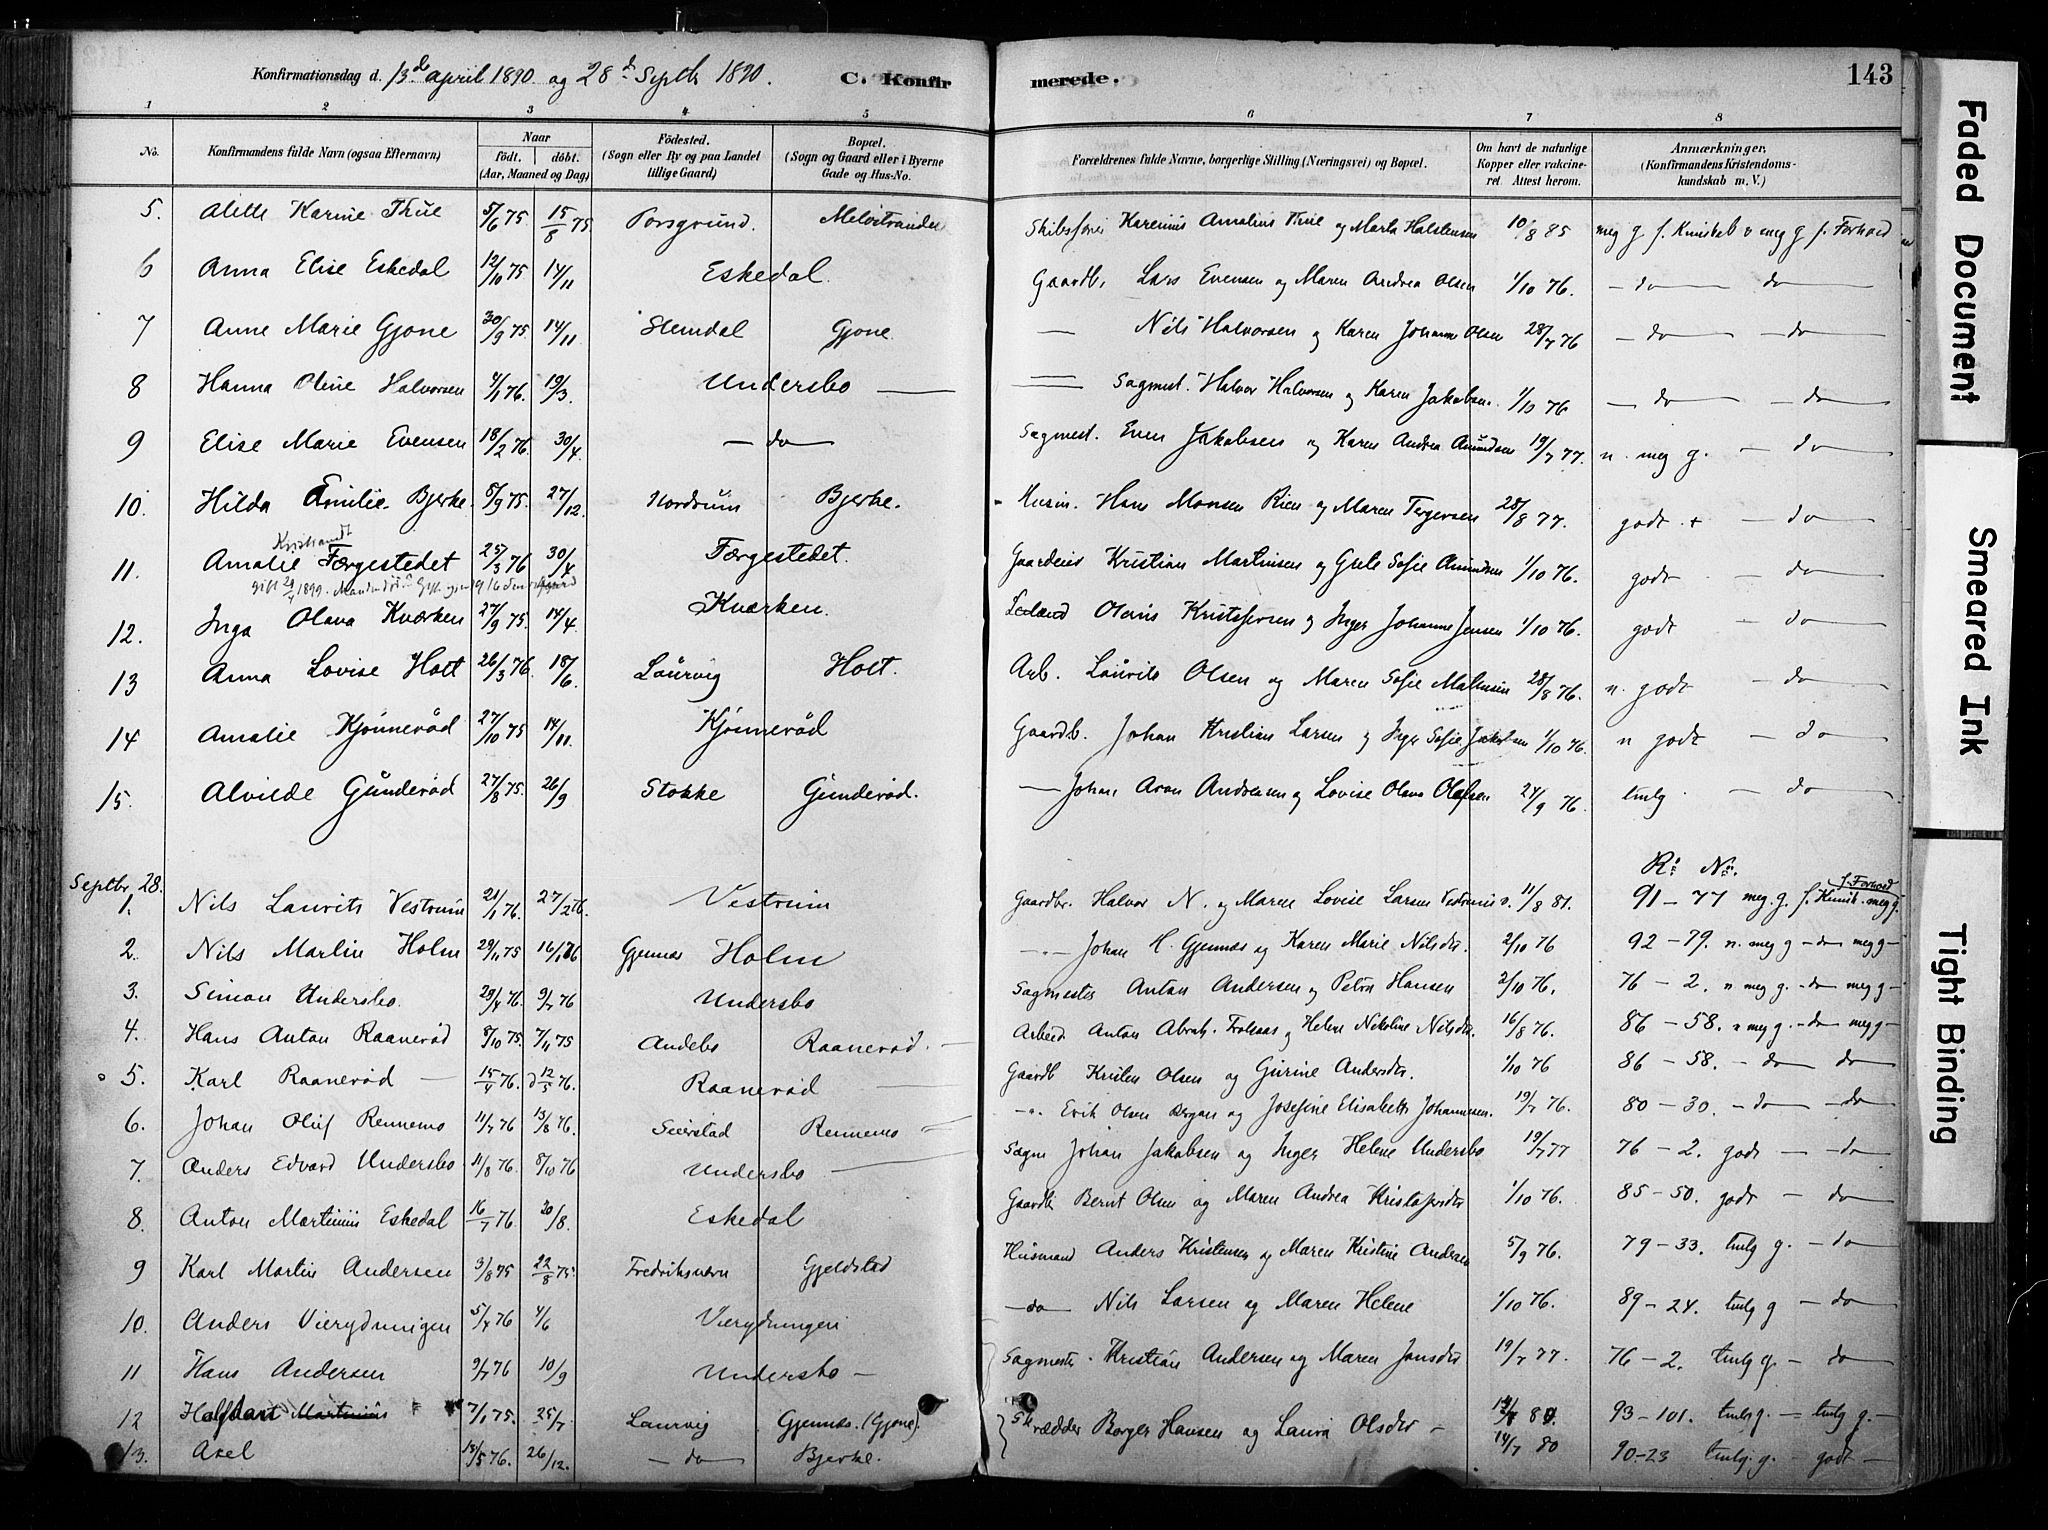 Konfirmationsdag d. 13de april 1890 og 28d Septbr 1890. C. Konfirmerede. 143
1 2 3 4 5 6 7 8
No. Konfirmandens fulde Navn (ogsaa Efternavn) Naar födt. döbt. (Aar, Maaned og Dag) Födested. (Sogn eller By og paa Landet tillige Gaard) Bopæl. (Sogn og Gaard eller i Byerne Gade og Hus-No. Forældrenes fulde Navne, borgerlige Stilling (Næringsvei) og Bopæl. Om havt de naturlige Kopper eller vakcineret. Attest herom. Anmærkninger, (Konfirmandens Kristendomskundskab m. V.)
5. Alette Karine Thue 5/6 75 15/8 75 Porsgrund. Karenius Amalius Thue og Marta Halstensen 10/8 85 meg g. f. Kundskab o meg g f. Forhold
6 Anna Elise Eskedal 12/10 75 14/11 Eskedal. Gaardb. Lars Evensen og Maren Andrea Olsen 1/10 76. — do — do —
7 Anne Marie Gjone 30/9 75 14/11 Slemdal Gjone. — Nils Halvorsen og Karen Johanne Olsen 28/7 76 — do — — do —
8 Hanna Oline Halvorsen 4/1 76. 19/3. Undersbo — Sagmest. Halvor Halvorsen og Karen Jakobsen. 1/10 76 — do — do —
9 Elise Marie Evensen 18/2 76. 30/4. — do — Sagmest. Even Jakobsen og Karen Andrea Amundsen 19/7 77. n. meg g. — do —
10. Hilda Emilie Bjerke. 5/9 75. 27/12. Nordrum Bjerke. Husm. Hans Monsen Rien og Maren Tergersen 28/8 77. godt + — do —
11. Amalie Færgestedet 25/3 76 30/4 Færgestedet. Gaardeier Kristian Martinsen og Grete Sofie Amundsen 1/10 76. godt — do —
12. Inga Olava Kværken 27/9 75. 14/4. Kværken. Olavis Kristofersen og Inger Johanne Jensen 1/10 76. godt — do —
13 Anna Lovise Holt 26/3 76. 18/6. Laurvig Holt. Arb. Laurits Olsen og Maren Sofie 28/8 76. n. godt — do —
14 Amalie Kjønnerød 27/10 75 14/11. Kjønnerød Gaardb. Johan Kristian Larsen og Inger Sofie Jakobsen 1/10 76. n godt — do —
15. Alvilde Gunderød 27/8 75. 26/9 Stokke Gunderød. — Johan Aron Andreasen og Lovise Olava Olafsen 27/9 76. tmlg. — do —
Septbr 28. R: No:
1. Nils Laurits Vestrum 21/1 76. 27/2 76. Vestrum Gaardbr. Halvor N. og Maren Lovise Larsen Vestrum v. 11/8 81. 91 — 77 meg. g. f Kunsk. meg g. f. Forhold
2. Nils Martin Holm 29/11 75 16/1 76 Gjennæs Holm —"— Johan H. Gjennæs og Karen Marie Nilsdtr. 2/10 76 92 — 79. n. meg g — do meg g —
3. Simon Undersbo. 29/4 76. 9/7 76 Undersbo Sagmester Anton Andersen og Petra Hansen 2/10 76. 76 — 2. n meg g. — do meg g —
4. Hans Anton Raanerød 8/10 75. 7/11 75 Andebo Raanerød. — Arbeid Anton Abrah. og Helene Nikoline Nilsdtr. 16/8 76. 86 — 58. n meg g. — do meg g —
5. Karl Raanerød — 15/4 76. 12/5 76. Raanerød Gaardb Kristen Olsen og Gurine Andersdtr. 1/10 76 86 — 58. — do — do —
6. Johan Oluf Rennemo 11/7 76 13/8 76. Seierstad Rennemo —"— Erik Olsen Bergan og Josefine Elisabeth Johannesen. 19/7 76. 80 — 30. — do — — do
7. Anders Edvard Undersbo 11/8 76. 8/10 76 Undersbo — Sagm Johan Jakobsen og Inger Helene Undersbo 19/7 77 76 — 2. godt — — do
8. Anton Martinius Eskedal 16/7 76 20/8. Eskedal Gaardb Bernt Olsen og Maren Andrea Kristofersdtr 1/10 76. 85 — 50. godt — do
9 Karl Martin Andersen 3/8 75 22/8 75. Fredriksværn Gjeldstad Husmand Anders Kristensen og Maren Kristine Andersen 5/9 76. 79 — 33. tmlg g. — do
10. Anders Vierydningen 5/4 76 4/6 Vierydningen — do — Nils Larsen og Maren Helene 1/10 76. 89 — 24. tmlg g — do —
11 Hans Andersen 9/7 76 10/9 Undersbo — Sagmester Kristian Andersen og Maren Jonsdtr 19/7 77. 76 — 2. tmlg g. — do
12 Halfdan Martinius 7/1 75. 25/7. Laurvig Gjennæs. (Gjone). Skrædder Borger Hansen og Laura Olsdtr — 93 — 101. tmlg g. — tmlg g. —
13. Axel 13/5 76. 26/12. — do Bjerke. 14/7 80 90 — 23 tmlg. g. — godt —
Faded Document
Smeared Ink
Tight Binding